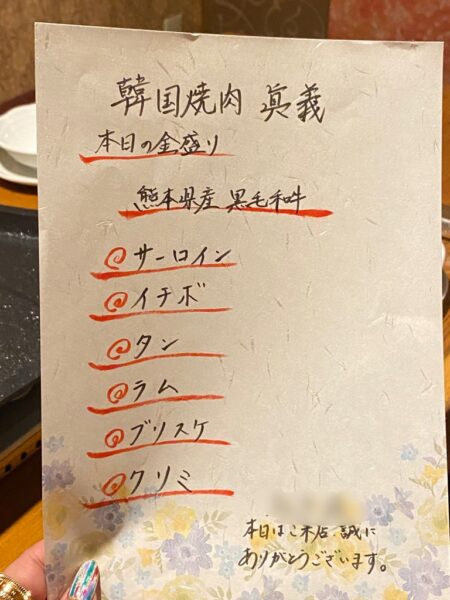 韓国焼肉 眞義
本日の金盛り
熊本県産 黒毛和牛
@サーロイン
@イチボ
@タン
@ラム
@ブリスケ
@クリミ
本日はご来店、誠に
ありがとうございます。